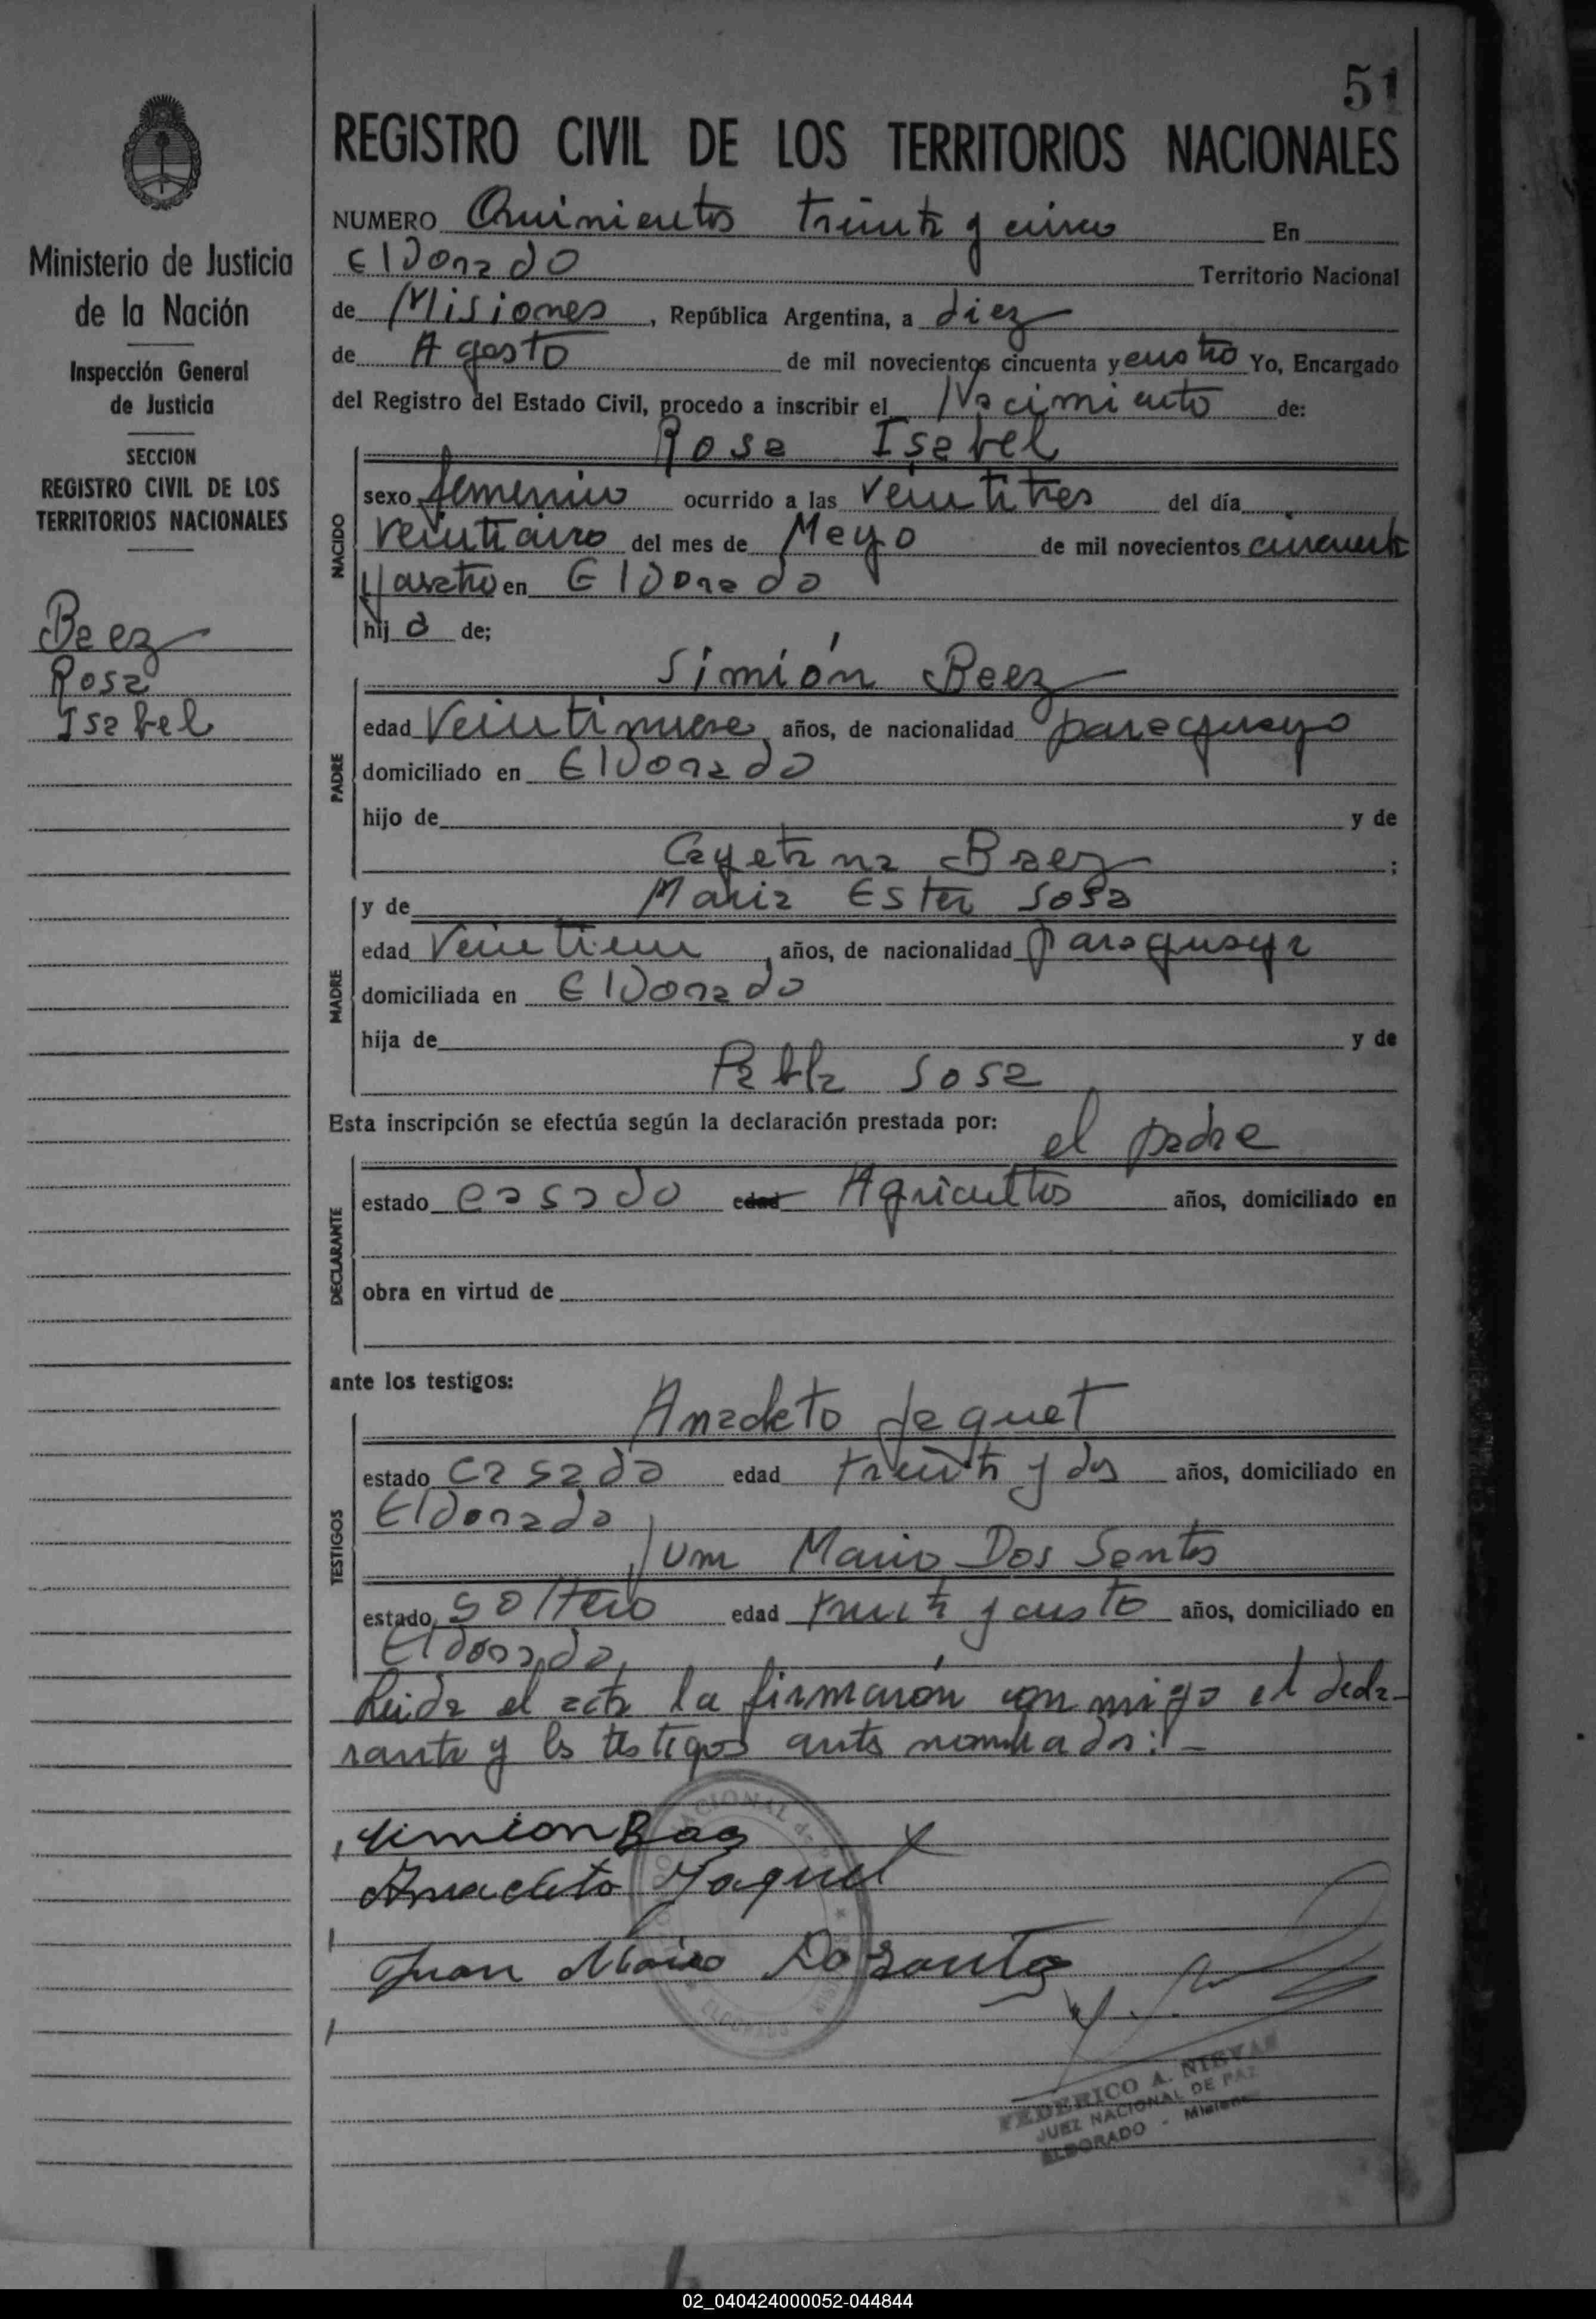 51
REGISTRO CIVIL DE LOS TERRITORIOS NACIONALES
Ministerio de Justicia
de la Nación
Inspección General
de Justicia
SECCION
REGISTRO CIVIL DE LOS
TERRITORIOS NACIONALES
Baez
Rosa
Isabel
NUMERO Quinientos treinta y cinco En
ElDorado Territorio Nacional
de Misiones, República Argentina, a diez
de Agosto de mil novecientos cincuenta y cuatro Yo, Encargado
del Registro del Estado Civil, procedo a inscribir el Nacimiento de:
NACIDO
Rosa Isabel
sexo femenino ocurrido a las veintitres del día
veinticinco del mes de Mayo de mil novecientos cincuenta
y cuatro en ElDorado
hij a de;
PADRE
Simión Baez
edad veintinueve años, de nacionalidad paraguayo
domiciliado en ElDorado
hijo de y de
Cayetana Baez ;
MADRE
y de Maria Ester Sosa
edad Veintiun, años, de nacionalidad paraguaya
domiciliada en ElDorado
hija de y de
Pabla Sosa
Esta inscripción se efectúa según la declaración prestada por:
DECLARANTE
el padre
estado casado edad Agricultor años, domiciliado en
obra en virtud de
ante los testigos:
TESTIGOS
Anacleto Jaquet
estado casado edad treinta y dos años, domiciliado en
Eldorado
Juan Mario Dos Santos
estado soltero edad treinta y cuatro años, domiciliado en
Eldorado,
Leida el acta la firmarón con migo el decla-
rante y los testigos antes nombrados:-
Simion Baez
Anacleto Jaquet
Juan Mairo Do Santos
FEDERICO A.
JUEZ NACIONAL DE PAZ
ELDORADO - Misiones
02_040424000052-044844